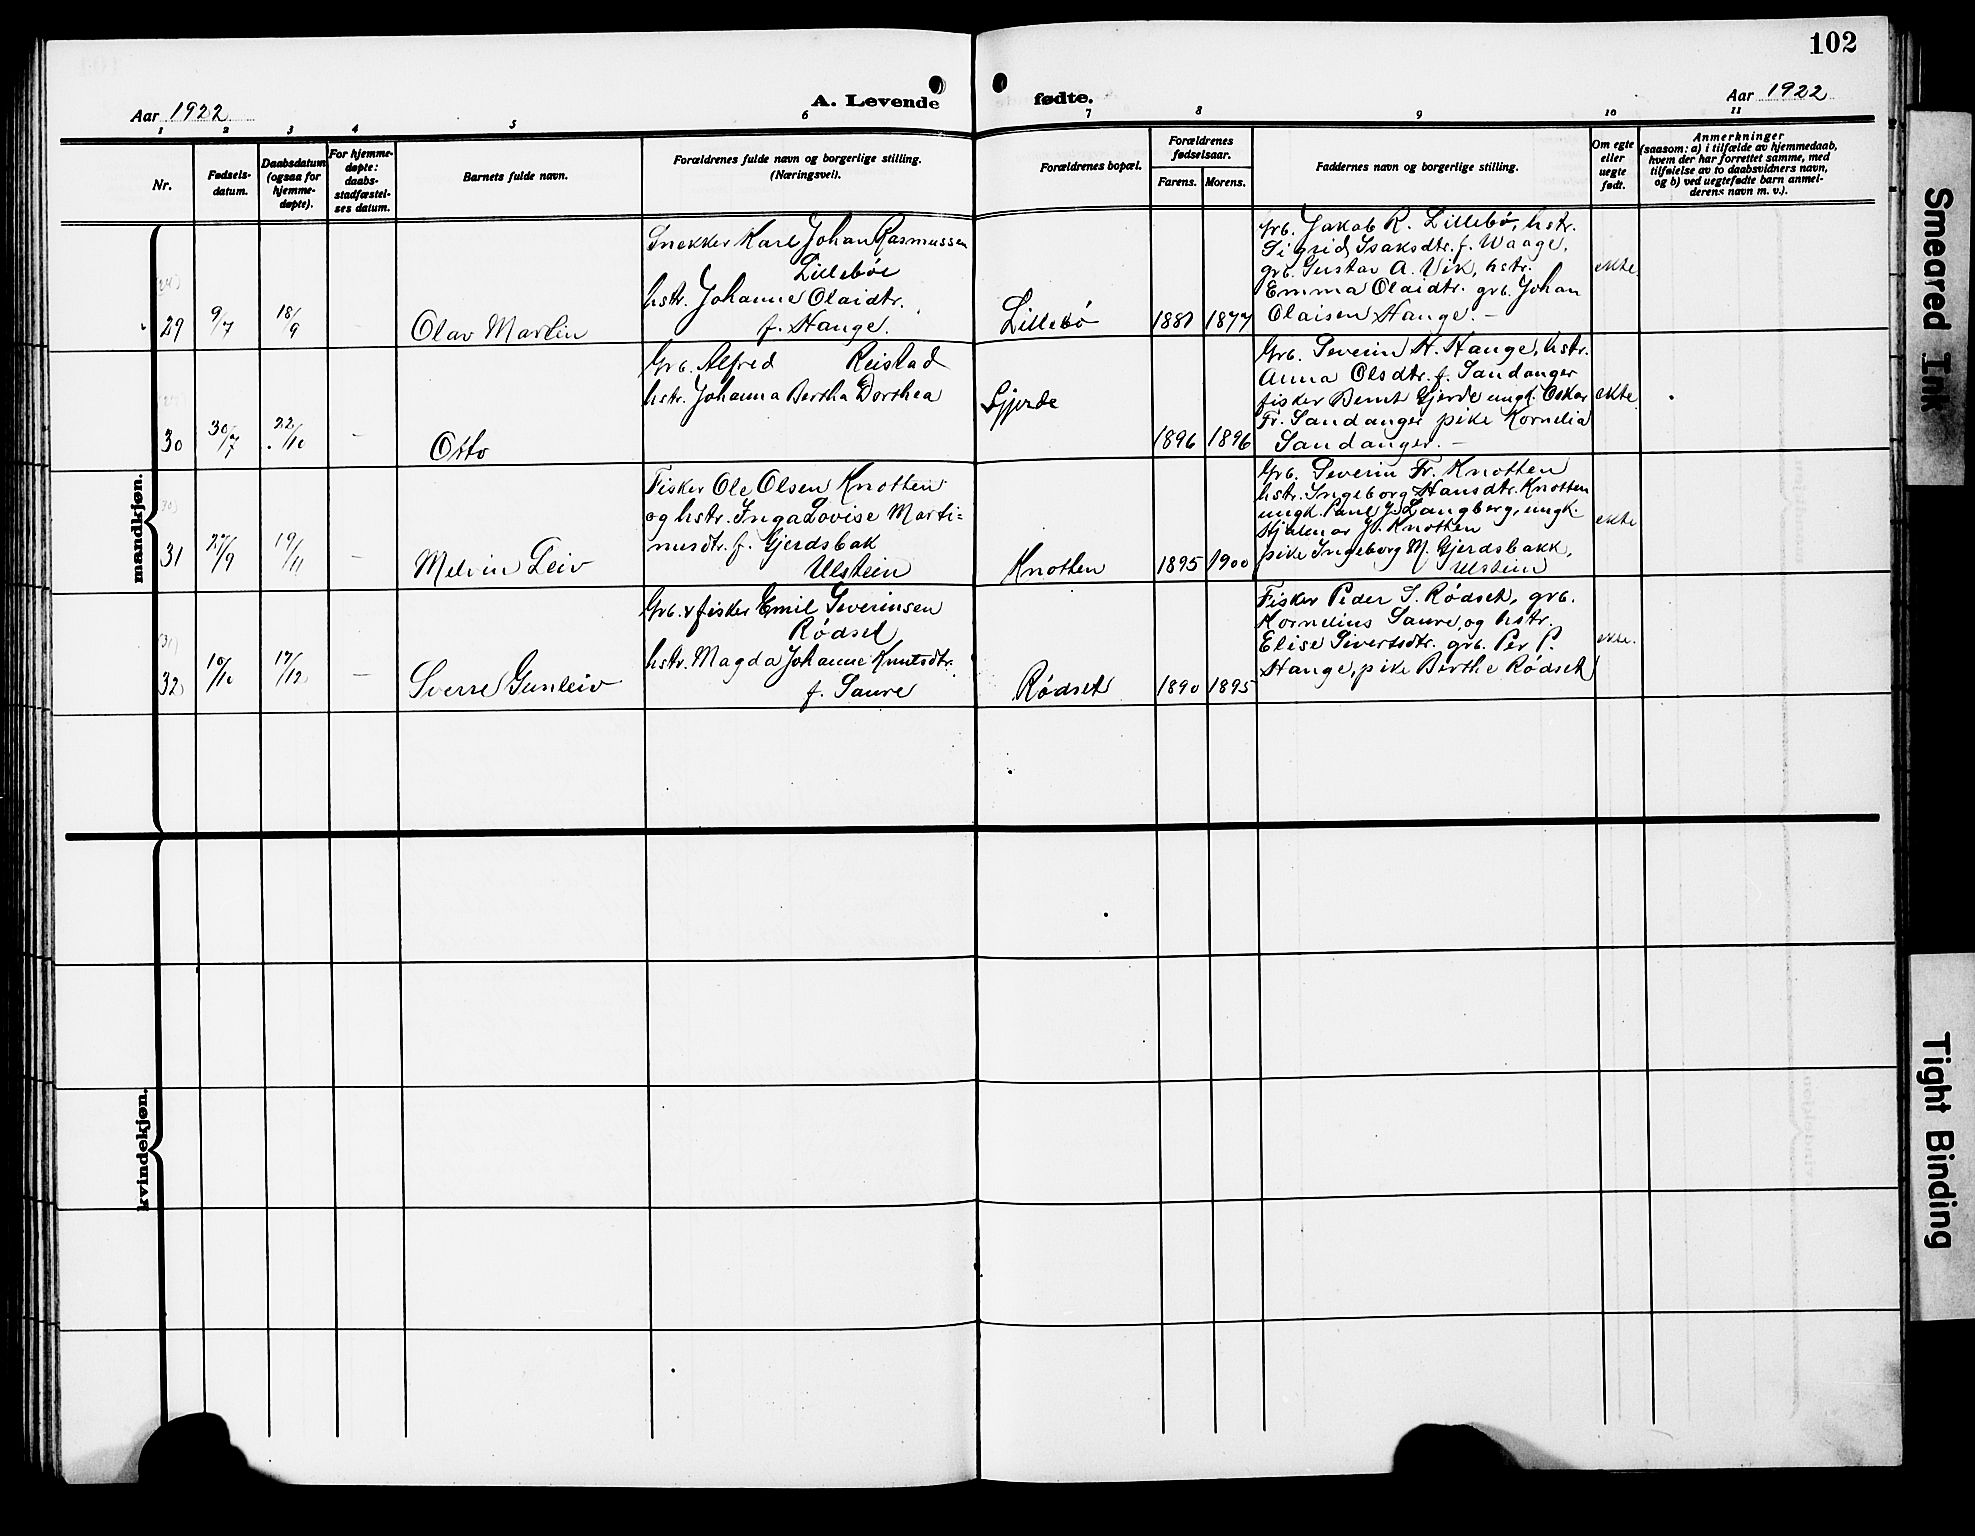 102
Aar 1922
A. Levende
fødte.
Aar 1922
1 2 3 4 5 6 7 8 9 10 11
Nr.
Fødsels-
datum.
Daabsdatum
(ogsaa for
hjemme-
døpte).
For hjemme-
døpte:
daabs-
stadfæstel-
ses datum.
Barnets fulde navn.
Forældrenes fulde navn og borgerlige stilling.
(Næringsvei).
Forældrenes bopæl.
Forældrenes
fødselsaar.
Farens. Morens.
Faddernes navn og borgerlige stilling.
Om egte
eller
uegte
født.
Anmerkninger
(saasom: a) i tilfælde av hjemmedaab,
hvem der har forrettet samme, med
tilføielse av to daabsvidners navn,
og b) ved uegtefødte barn anmel-
derens navn m. v.).
mandkjøn.
29
9/7
18/9
Olav Martin
Snekker Karl Johan Rasmussen
Lillebøe
hstr. Johanne Olaidtr.
f. Hauge.
Lillebø
1881 1877
grb. Jakob R. Lillebø, hstr.
Sigrid Isaksdtr. f. Waage,
grb. Gustav A. Vik, hstr.
Emma Olaidtr. grb. Johan
Olaisen Hauge. -
ekte
30
30/7
22/10
-
Otto
Grb. Alfred Reistad
hstr. Johanna Bertha Dorthea
Gjerde
1896 1896
Grb. Severin H. Hauge, hstr.
Anna Olsdtr. f. Sandanger
fisker Bernt Gjerde ungk. Oskar
Fr. Sandanger pike Kornelia
Sandanger. -
ekte
31
27/9
19/11
-
Melvin Leiv
Fisker Ole Olsen Knotten
og hstr. Inga Lovise Marti=
nusdtr. f. Gjerdsbak
Ulstein
Knotten
1895 1900
Grb. Severin Fr. Knotten
hstr. Ingeborg Hansdtr. Knotten
ungk. Paul J. Langberg, ungk.
Hjalmar J. Knotten
pike Ingeborg M. Gjerdsbakk,
Ulstein
ekte
32
10/10
17/12
-
Sverre Gunleiv
Grb. & fisker Emil Severinsen
Rødset
hstr. Magda Johanne Knutsdtr.
f. Saure
Rødset
1890 1895
Fisker Peder S. Rødset, grb.
Kornelius Saure, og hstr.
Elise Sivertsdtr. grb. Per P.
Hauge, pike Berthe Rødset
ekte.
kvindekjøn.
Smeared Ink
Tight Binding